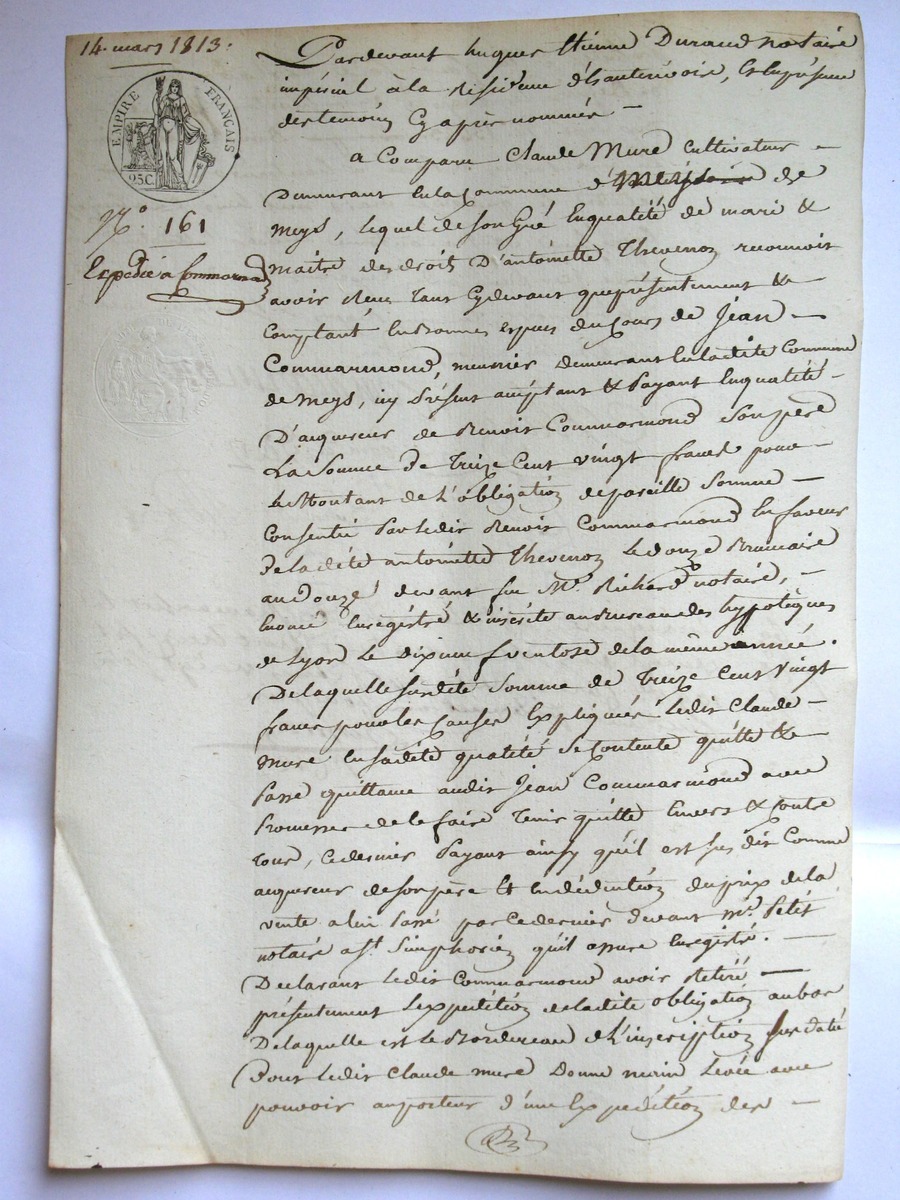 14. mars 1813.
EMPIRE FRANÇAIS
25C.
N.º 161
Expédié a Commarmond
Pardevant hugues Etienne Durand notaire
impérial à la résidence d'hauterivoire, et en présence
des temoins cy après nommés —
a Comparu Claude Mure Cultivateur —
Demeurant en la Commune de
Meys, lequel de son gré En qualité de mari &
maitre des droits D'antoinette Thevenoz reconnoit
avoir reçu tant cy devant que présentement &
Comptant en bonnes espèces du Cours de Jean —
Commarmond, meunier demeurant en la dite Commune
de Meys, icy Présent acceptant & Payant En qualité —
D'acquereur de Benoit Commarmond Son père
La Somme de Treize Cent vingt francs pour —
le Montant de L'obligation de pareille Somme —
Consentie Par ledit Benoit Commarmond En faveur
De la dite antoinette Thevenoz Le douze Brumaire
an Douze devant feu Me. Richard notaire, —
Enregistré & inscrite au Bureau des hypotèques
de Lyon Le dix neuf ventose de la même année.
De laquelle susdite Somme de Treize Cent Vingt
francs pour les Causes Expliquées ledit Claude —
Mure En sa dite qualité se Contente quitte &
Passe quittance audit Jean Commarmond avec
Promesse de le faire Tenir quitte Envers & Contre
Tous, Ce dernier Payant ainsy qu'il est sus dit Comme
acquereur de son père Et En déduction du prix de la
vente a lui Passé par Ce dernier devant Me. Petit
notaire a St. Simphorien qu'il assure Enregistré. —
Declarant ledit Commarmond avoir Retiré —
présentement L'expédition de la dite obligation au bas
De laquelle est le Bordereau de L'inscription sus daté
Dont ledit Claude Mure Donne main Levée avec
pouvoir au porteur d'une Expédition des —